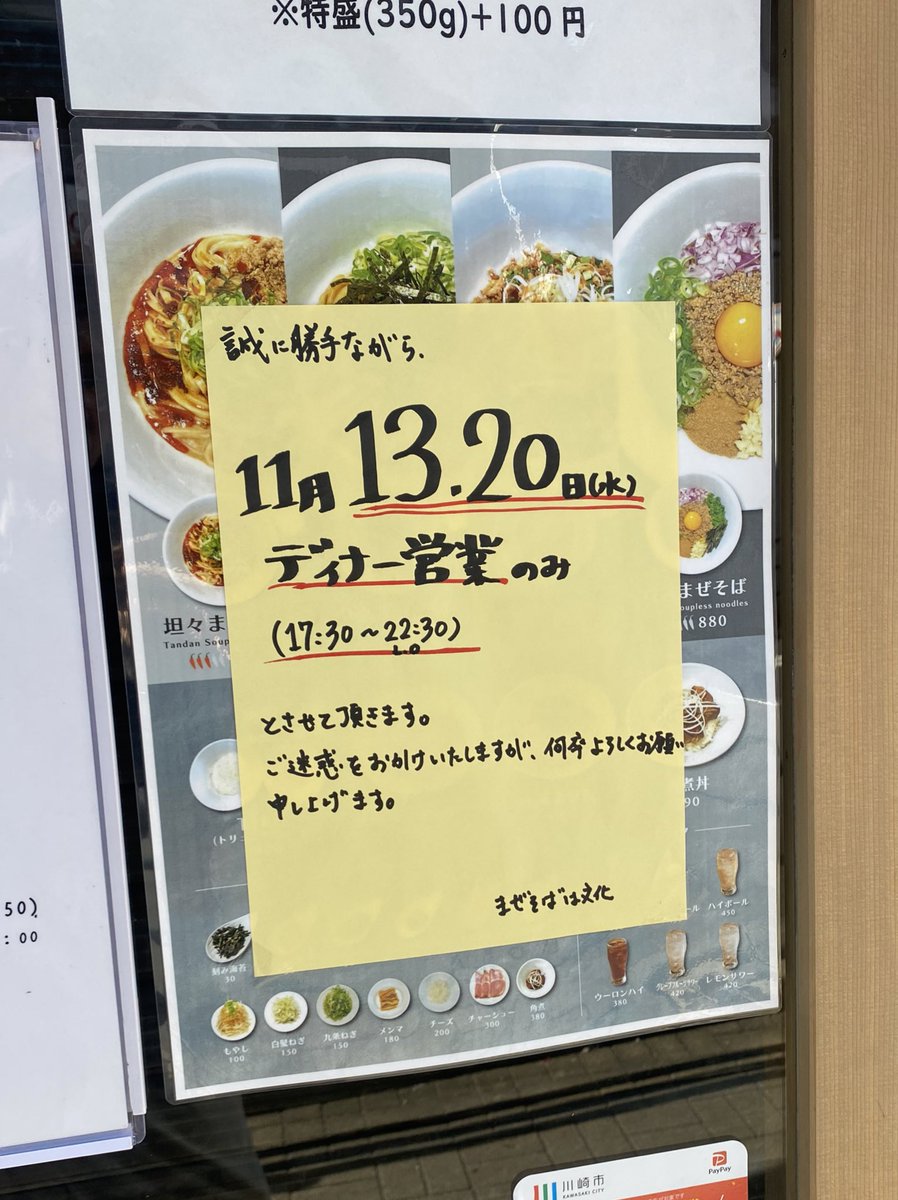 ※特盛(350g)+100円
誠に勝手ながら、
11月13.20日(水)
ディナー営業のみ
(17:30～22:30)
L.O
とさせて頂きます。
ご迷惑をおかけいたしますが、何卒よろしくお願い
申し上げます。
まぜそばは文化
坦々ま
Tandan Soup
まぜそば
oupless noodles
880
煮丼
90
(トリ
50)
:00
ハイボール
450
ール
ウーロンハイ
380
グレープフルーツサワー
420
レモンサワー
420
刻み海苔
30
もやし
100
白髪ねぎ
150
九条ねぎ
150
メンマ
180
チーズ
200
チャーシュー
300
角煮
380
川崎市
KAWASAKI CITY
PayPay